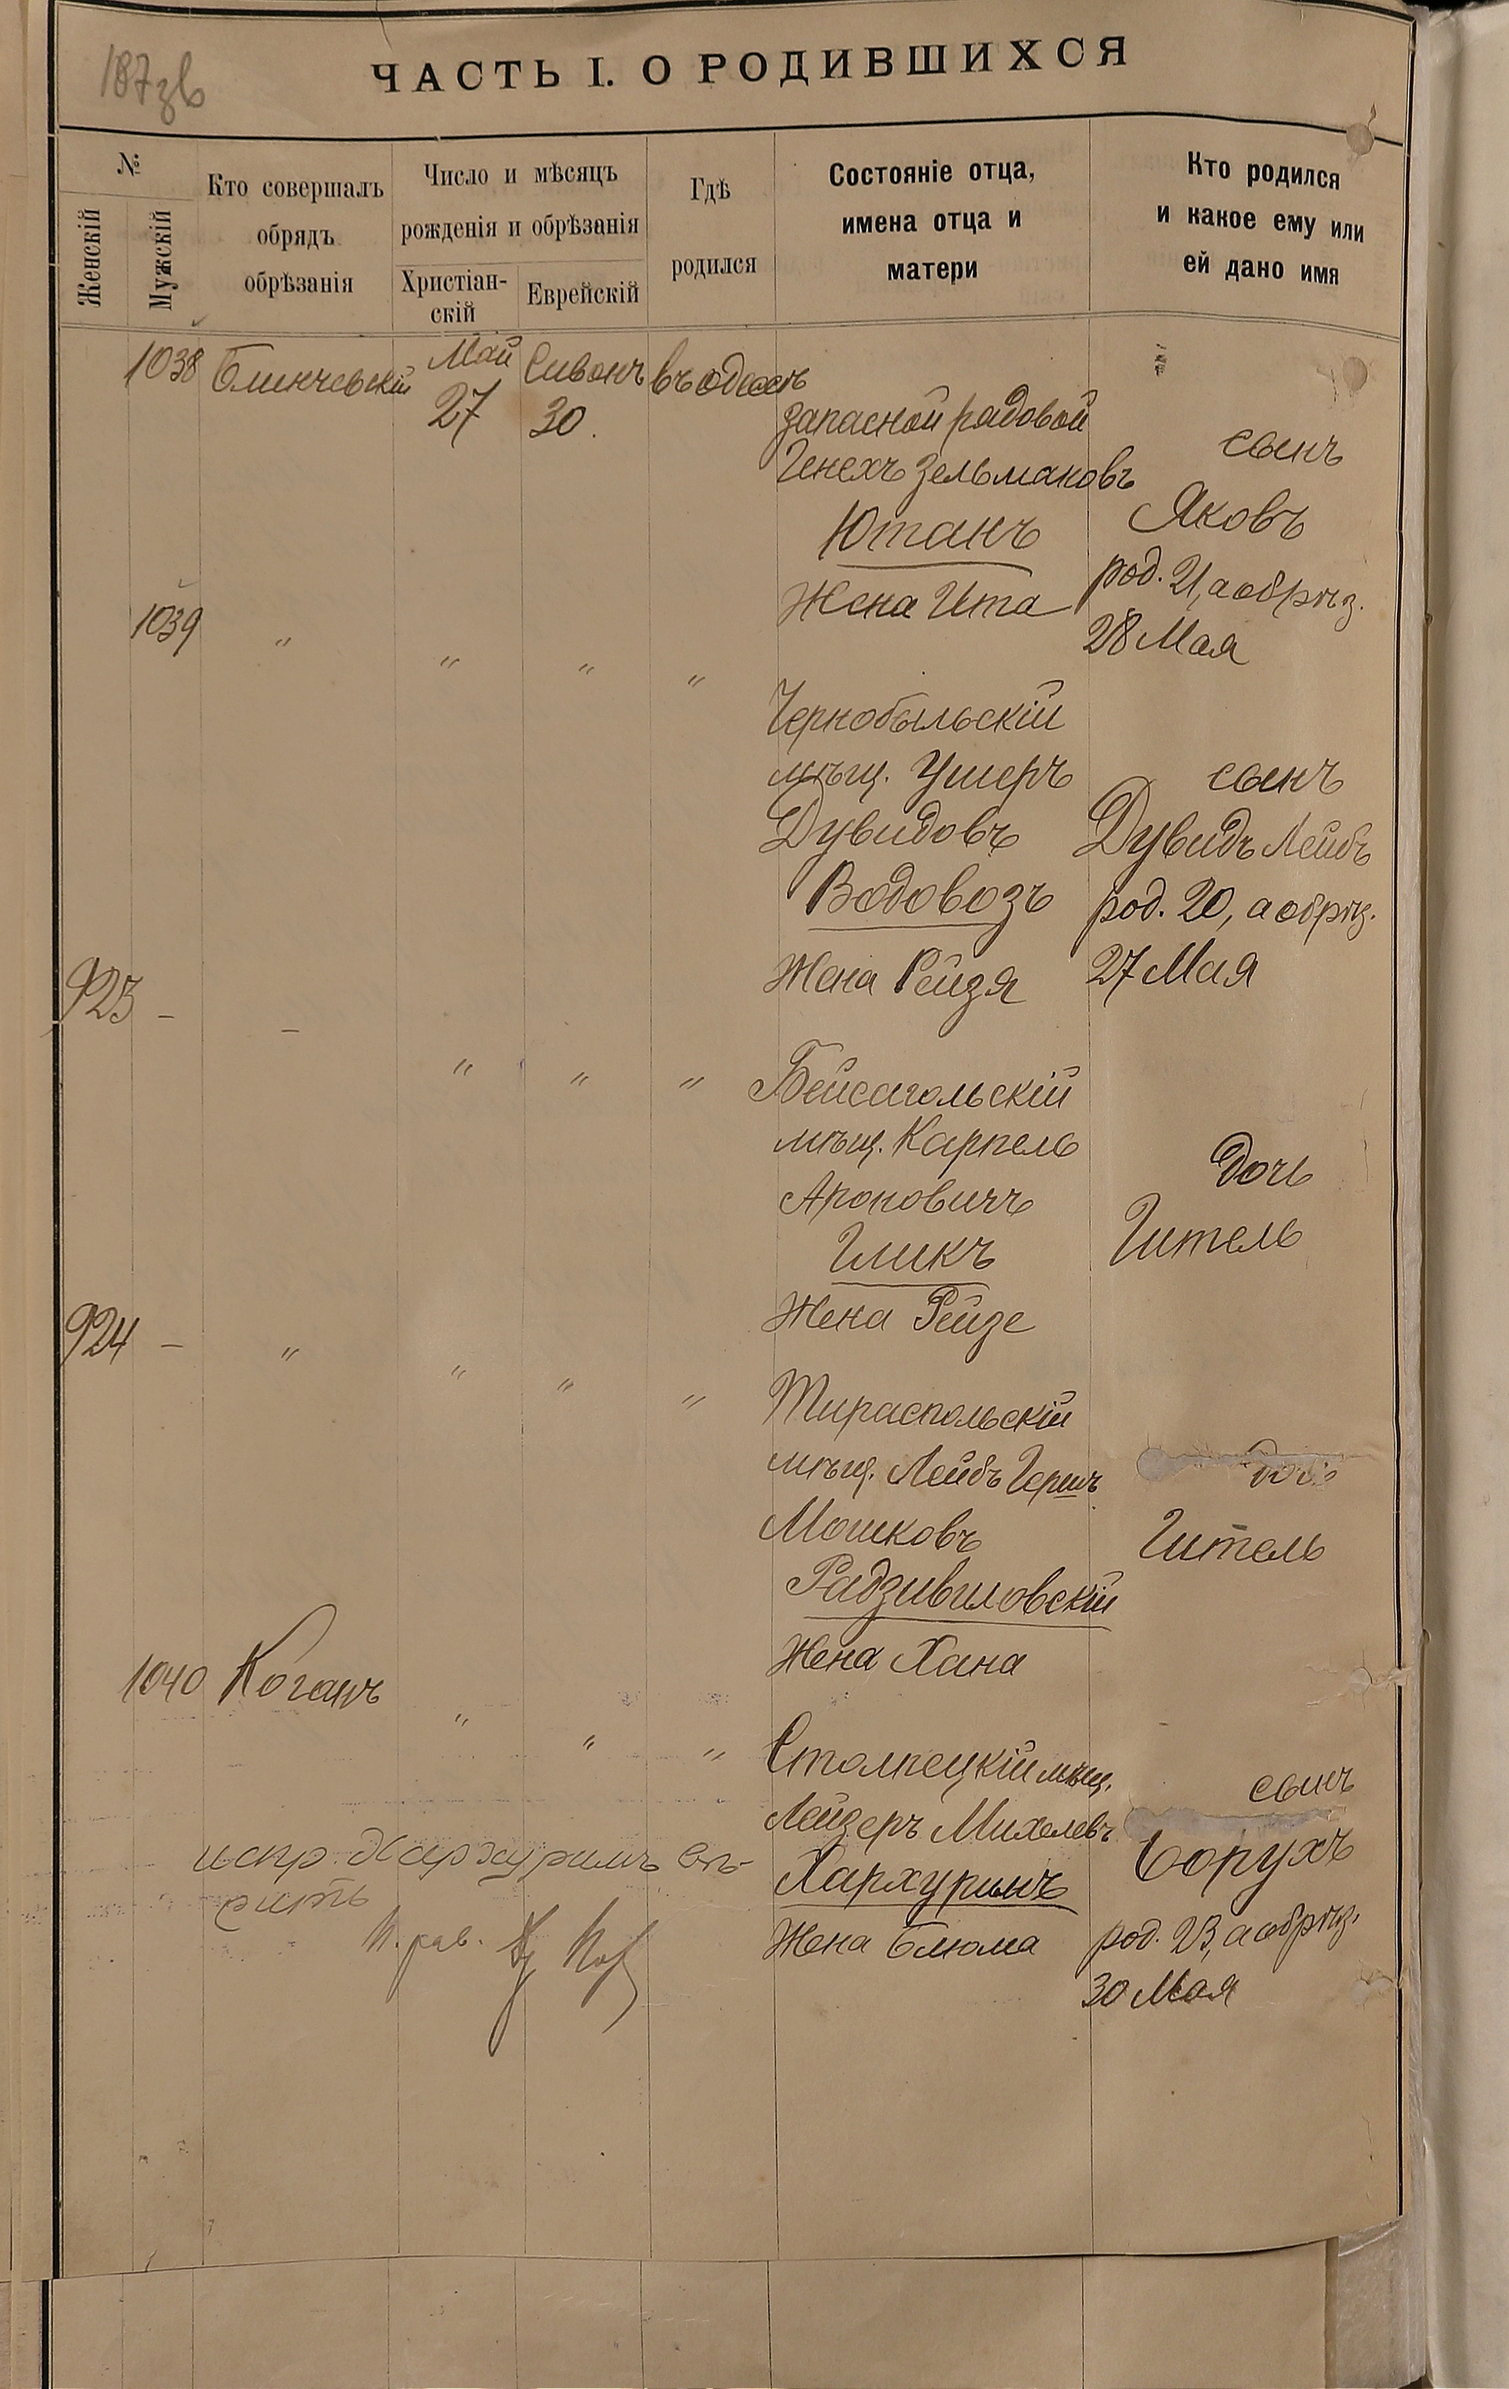 187зв
ЧАСТЬ I. О РОДИВШИХСЯ
№
Женскій
Мужскій
Кто совершалъ
обрядъ
обрѣзанія
Число и мѣсяцъ
рожденія и обрѣзанія
Христіан-
скій
Еврейскій
Гдѣ
родился
Состояніе отца,
имена отца и
матери
Кто родился
и какое ему или
ей дано имя
1038 Блинчевскій Май 27 Сивонъ 30. въ Одессѣ
запасной рядовой
Генехъ Зельмановъ
Ютанъ
Жена Ита
сынъ
Яковъ
род. 21, а обрѣз.
28 Мая
1039 " " " "
Чернобыльскій
мѣщ. Ушеръ
Дувидовъ
Водовозъ
Жена Рейзя
сынъ
Дувидъ Лейбъ
род. 20, а обрѣз.
27 Мая
923 - - " " "
Бейсагольскій
мѣщ. Карпель
Ароновичъ
Гликъ
Жена Рейзе
дочь
Гитель
924 - " " " "
Тираспольскій
мѣщ. Лейбъ Гершъ
Мошковъ
Радзивиловскій
Жена Хана
дочь
Гитель
1040 Коганъ " " "
Столпецкій мѣщ.
Лейзеръ Михелевъ
Хархуримъ
Жена Блюма
сынъ
Борухъ
род. 23, а обрѣз.
30 Мая
испр. Хархуримъ вѣ-
рить